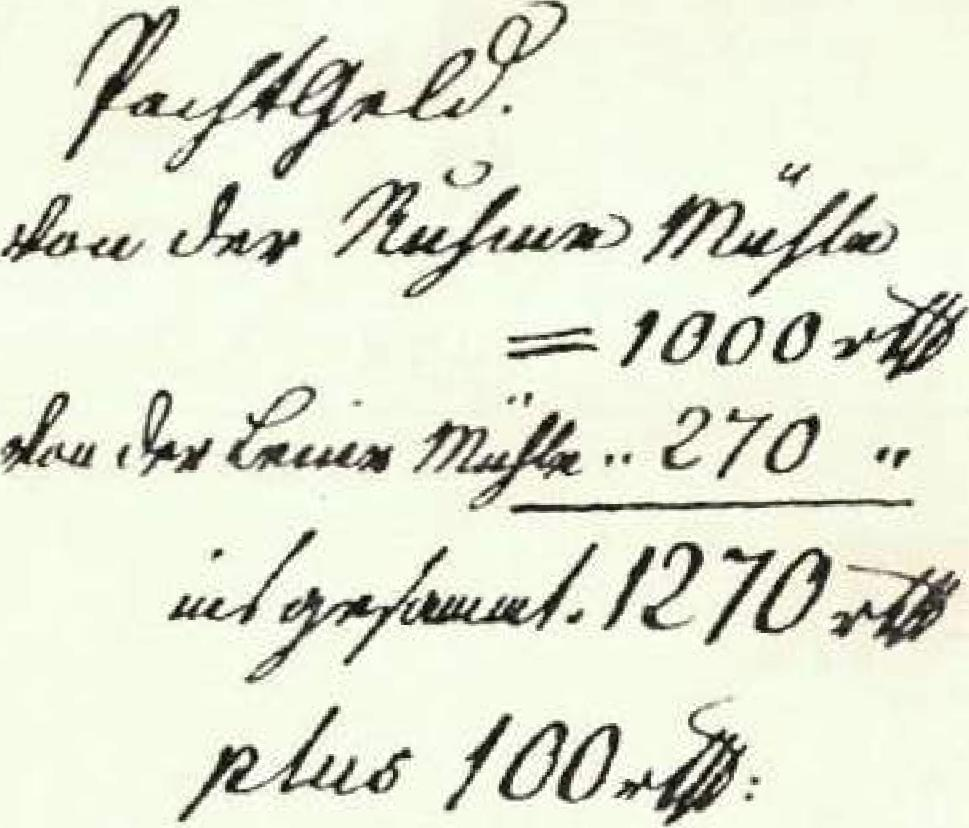 Pachtgeld.
von der Ruhmer Mühle
= 1000 rth
von der Leine Mühle " 270 "
insgesammt. 1270 rth
plus 100 rth: